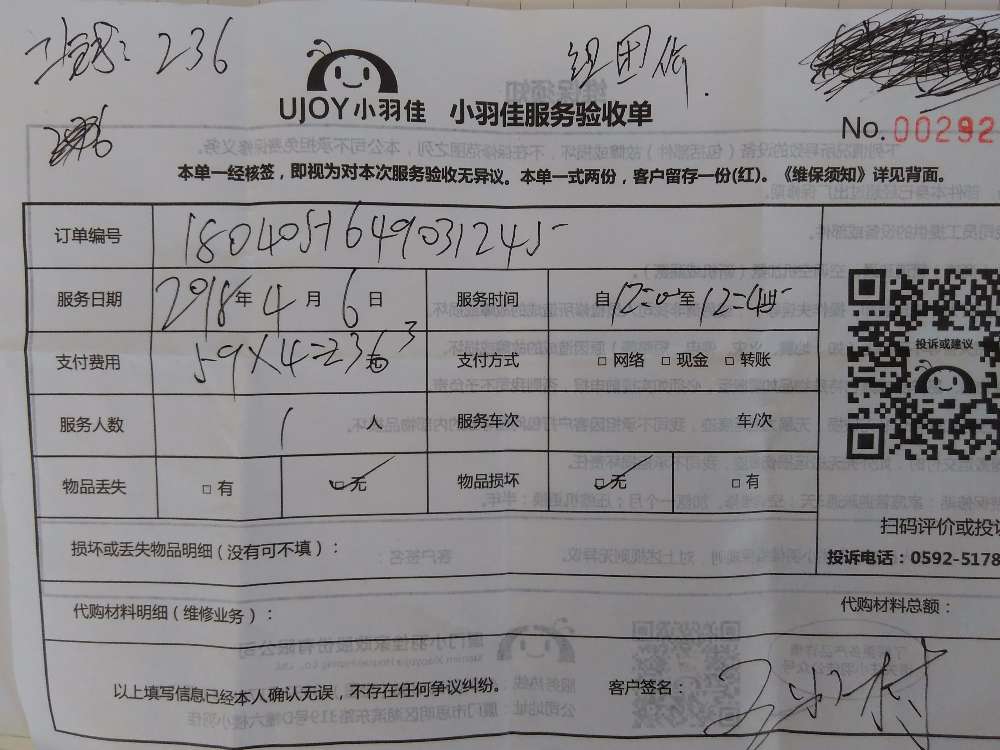 236
组团价
UJOY小羽佳 小羽佳服务验收单
No. 00292
本单一经核签，即视为对本次服务验收无异议。本单一式两份，客户留存一份(红)。《维保须知》详见背面。
订单编号 180405164903124
服务日期 2018年4月6日 服务时间 自12:00至12:45
支付费用 59×4=236元 支付方式 □网络 □现金 □转账
服务人数 1人 服务车次 车/次
物品丢失 □有 □无 物品损坏 □无 □有
投诉或建议
扫码评价或投
损坏或丢失物品明细（没有可不填）：
投诉电话：0592-5178
代购材料明细（维修业务）： 代购材料总额：
以上填写信息已经本人确认无误，不存在任何争议纠纷。 客户签名：